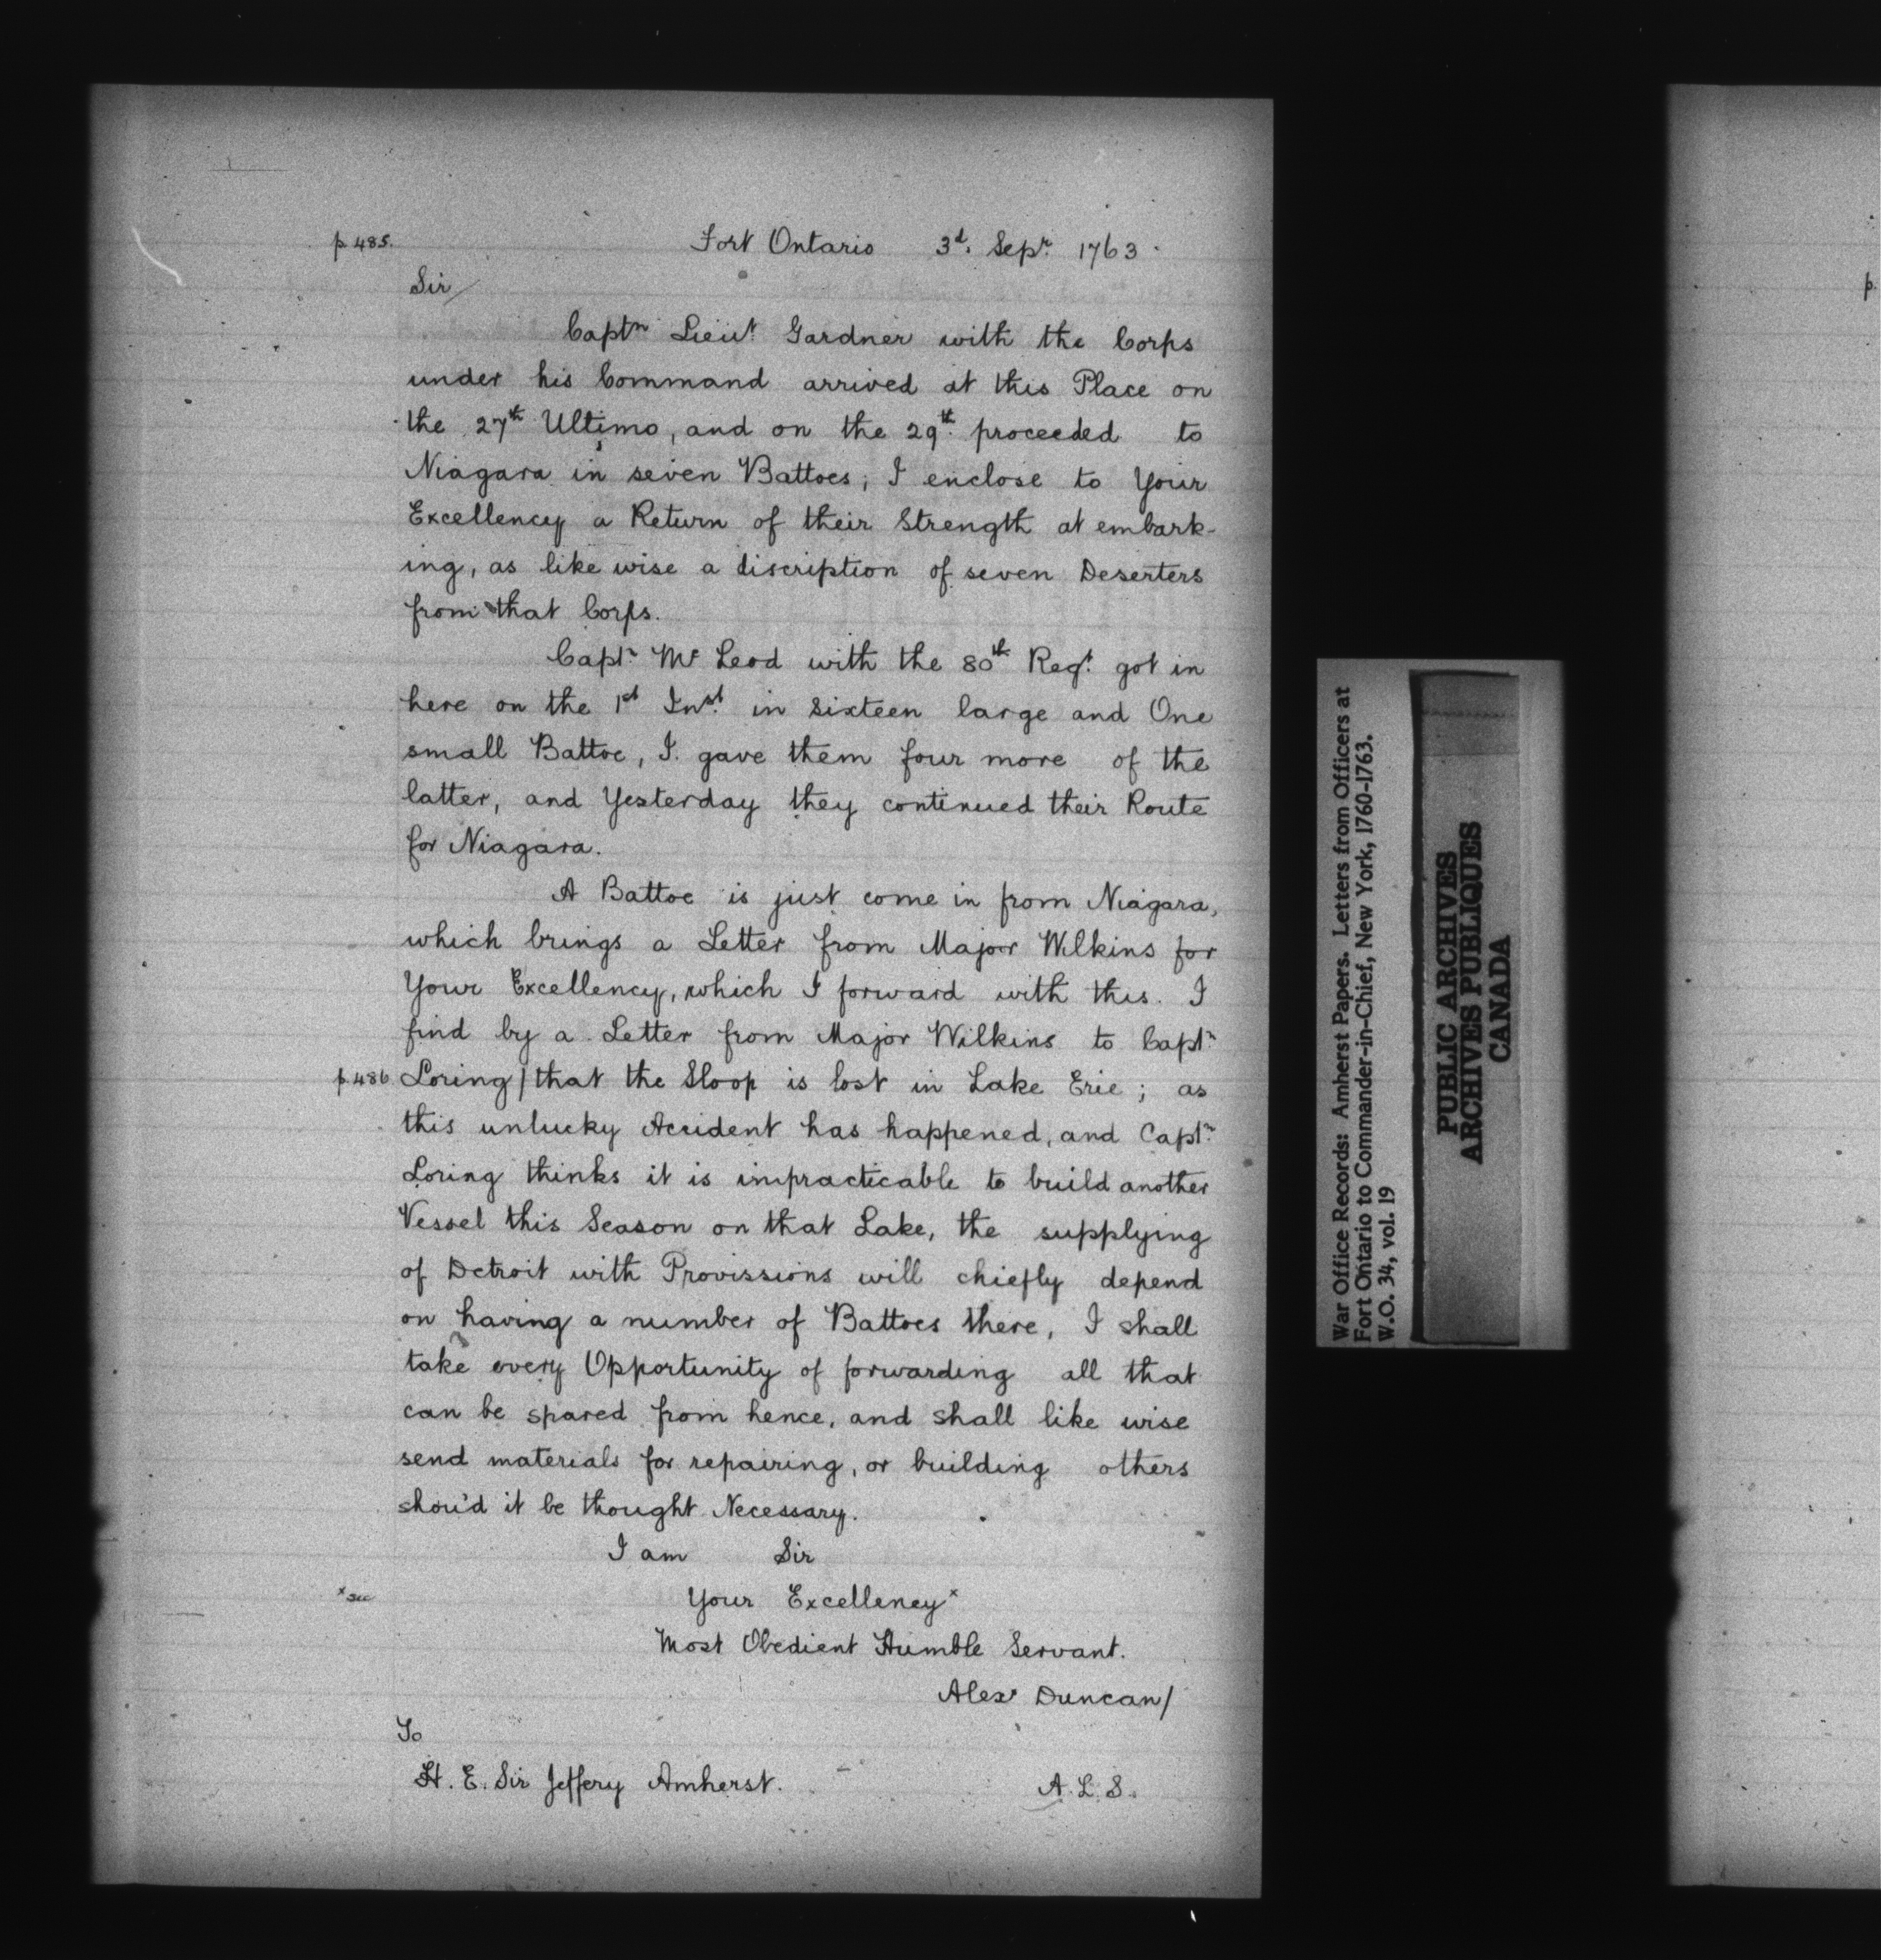 p. 485.
Fort Ontario 3d. Sepr. 1763.
Sir/
Captn Lieut. Gardner with the Corps
under his Command arrived at this Place on
the 27th Ultimo, and on the 29th. proceeded to
Niagara in seven Battoes; I enclose to Your
Excellency a Return of their Strength at embark-
ing, as like wise a discription of seven Deserters
from that Corps.
Captn. Mc Leod with the 80th Regt. got in
here on the 1st Inst. in sixteen large and One
small Battoe, I gave them four more of the
latter, and Yesterday they continued their Route
for Niagara.
A Battoe is just come in from Niagara,
which brings a Letter from Major Wilkins for
Your Excellency, which I forward with this. I
find by a Letter from Major Wilkins to Captn.
p. 486 Loring/ that the Sloop is lost in Lake Erie; as
this unlucky Accident has happened, and Captn.
Loring thinks it is impracticable to build another
Vessel this Season on that Lake, the supplying
of Detroit with Provissions will chiefly depend
on having a number of Battoes there, I shall
take every Opportunity of forwarding all that
can be spared from hence, and shall like wise
send materials for repairing, or building others
shou'd it be thought Necessary.
I am Sir
x sic
Your Excellency x
Most Obedient Humble Servant.
Alexr Duncan/
To
H. E. Sir Jeffery Amherst.
A. L. S.
War Office Records: Amherst Papers. Letters from Officers at
Fort Ontario to Commander-in-Chief, New York, 1760-1763.
W.O. 34, vol. 19
PUBLIC ARCHIVES
ARCHIVES PUBLIQUES
CANADA
p.